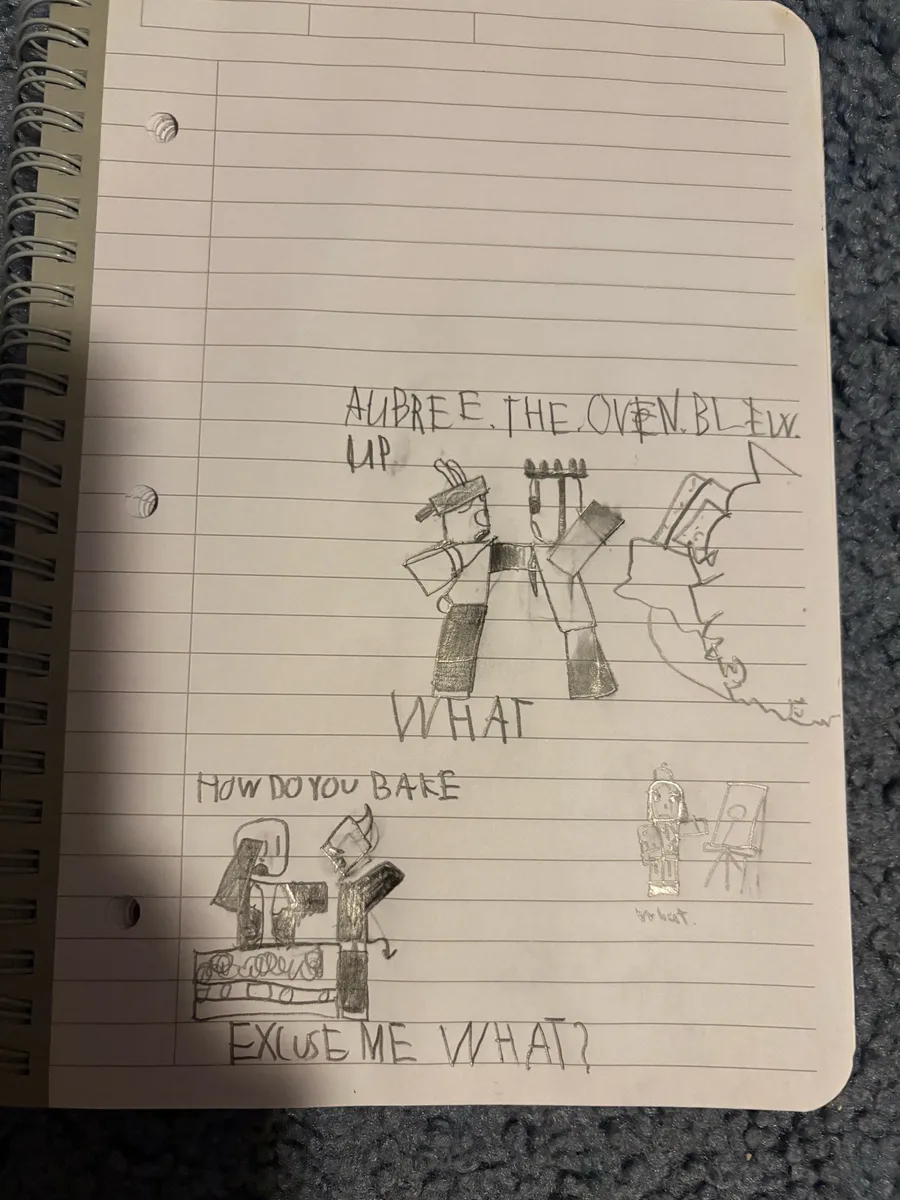 AUBREE. THE. OVEN. BLEW.
UP.
WHAT
HOW DO YOU BAKE
what.
EXCUSE ME WHAT?